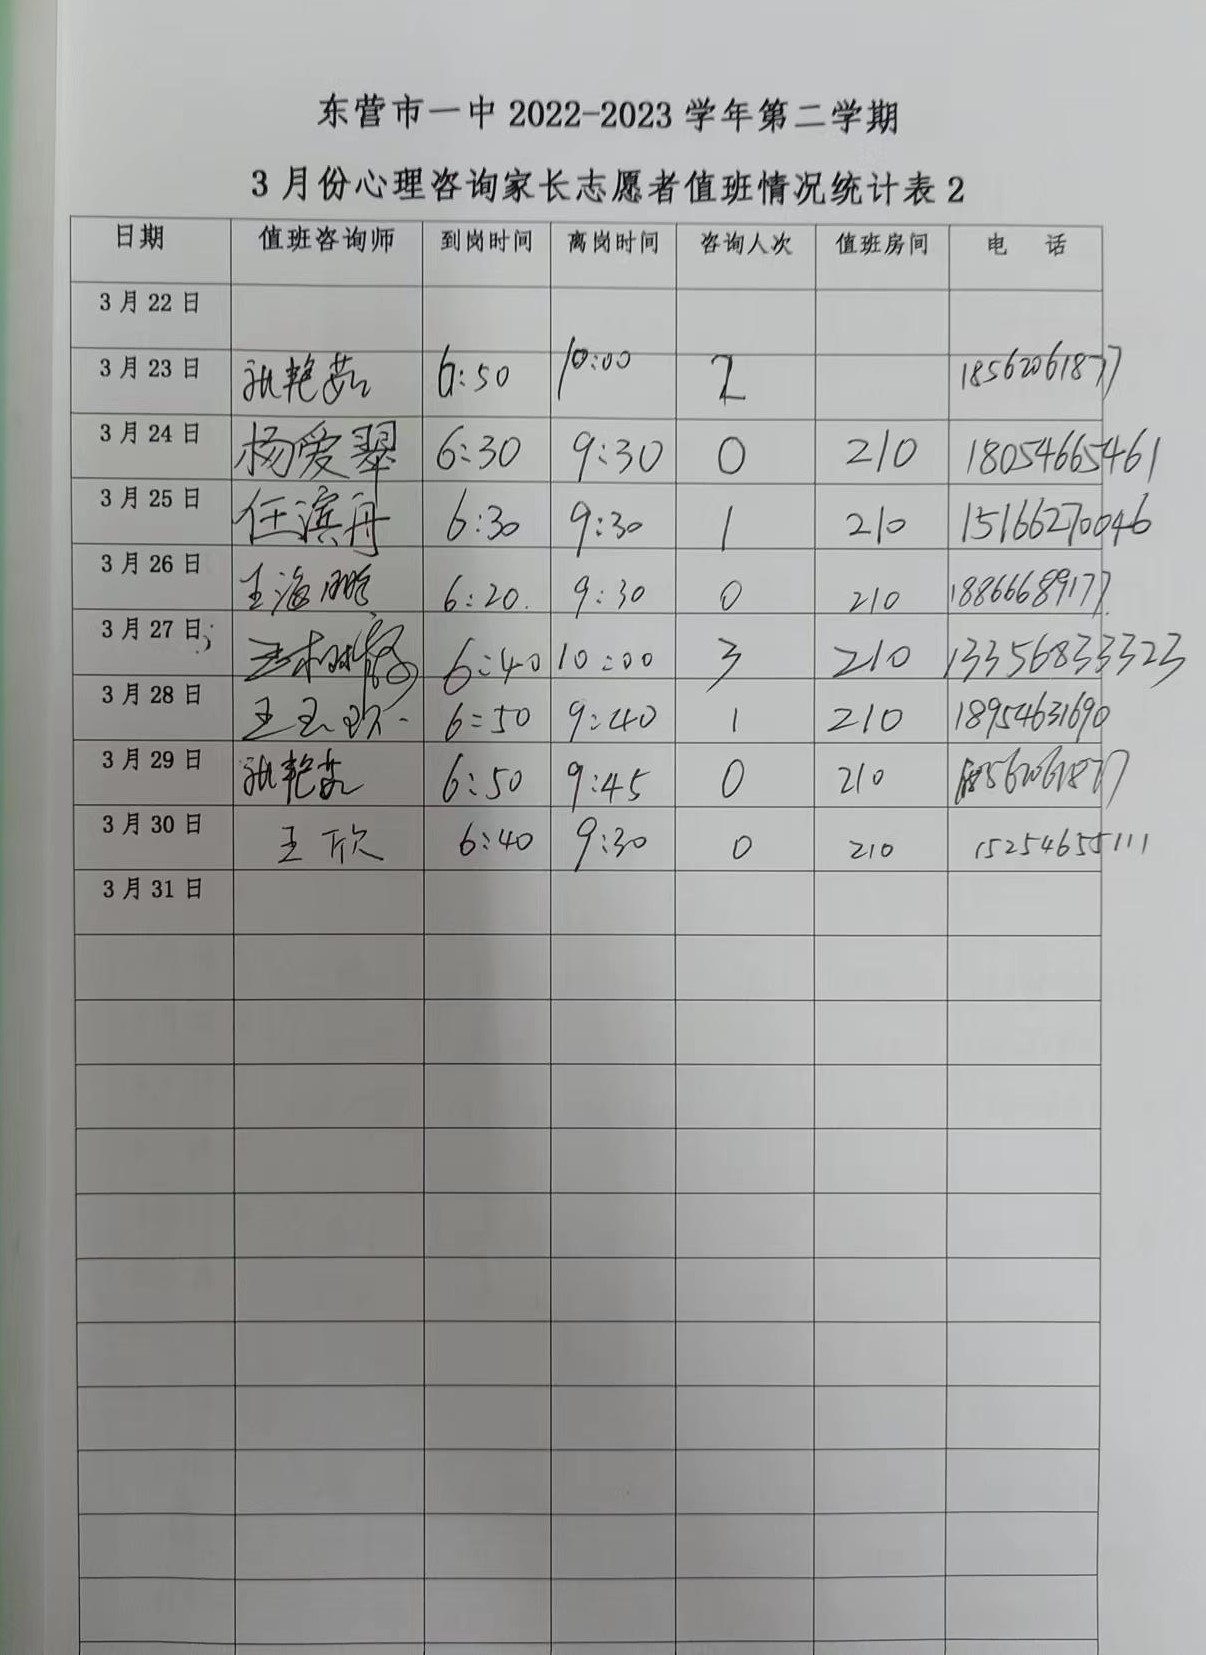 东营市一中 2022-2023 学年第二学期
3 月份心理咨询家长志愿者值班情况统计表 2
日期 值班咨询师 到岗时间 离岗时间 咨询人次 值班房间 电 话
3 月 22 日
3 月 23 日 艳茹 6:50 10:00 2 18562061877
3 月 24 日 杨爱翠 6:30 9:30 0 210 18054665461
3 月 25 日 任滨舟 6:30 9:30 1 210 15166270046
3 月 26 日 王海鹏 6:20. 9:30 0 210 18866689177
3 月 27 日 王树 6:40 10:00 3 210 13356833323
3 月 28 日 王玉欣 6:50 9:40 1 210 18954631690
3 月 29 日 艳茹 6:50 9:45 0 210 18562061877
3 月 30 日 王欣 6:40 9:30 0 210 15254655111
3 月 31 日